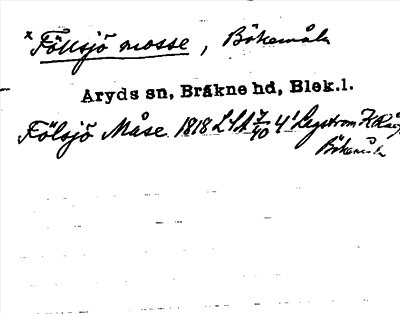 x Föllsjö mosse, Bökemåla
Aryds sn, Bräkne hd, Blek.l.
Fölsjö Måse 1818 LSA 7/40 4¹ Lagström
Bökemåla